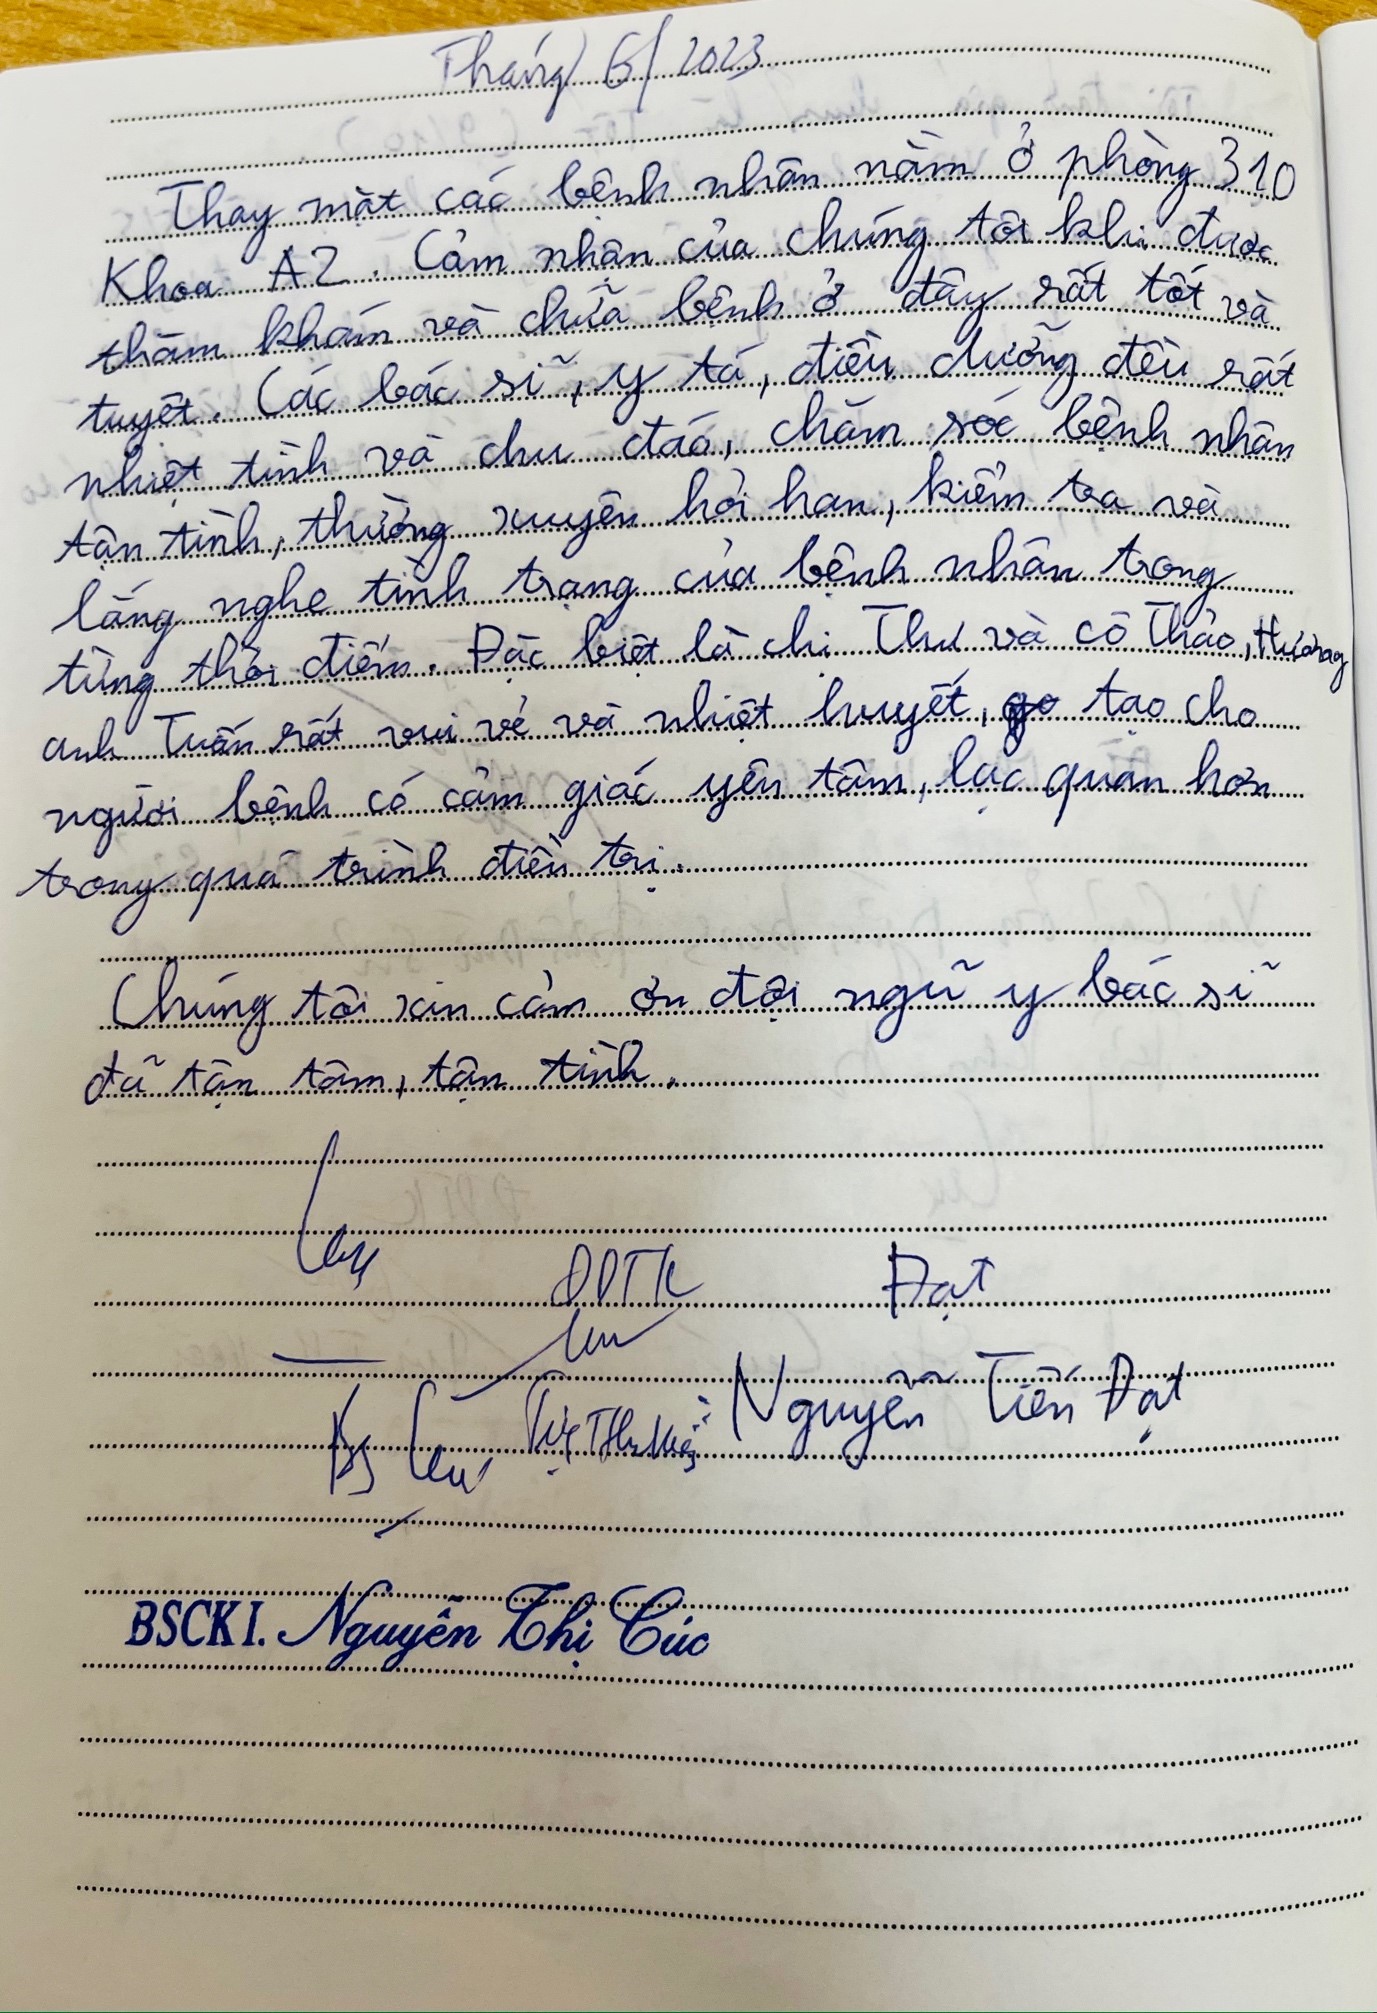 Tháng 6/2023
Thay mặt các bệnh nhân nằm ở phòng 310
Khoa A2. Cảm nhận của chúng tôi khi được
thăm khám và chữa bệnh ở đây rất tốt và
tuyệt. Các bác sĩ, y tá, điều dưỡng đều rất
nhiệt tình và chu đáo, chăm sóc bệnh nhân
tận tình, thường xuyên hỏi han, kiểm tra và
lắng nghe tình trạng của bệnh nhân trong
từng thời điểm. Đặc biệt là chị Thư và cô Thảo, Hương
anh Tuấn rất vui vẻ và nhiệt huyết, tạo cho
người bệnh có cảm giác yên tâm, lạc quan hơn
trong quá trình điều trị.
Chúng tôi xin cảm ơn đội ngũ y bác sĩ
đã tận tâm, tận tình.
ĐDTK Đạt
Nguyễn Tiến Đạt
BSCKI. Nguyễn Thị Cúc